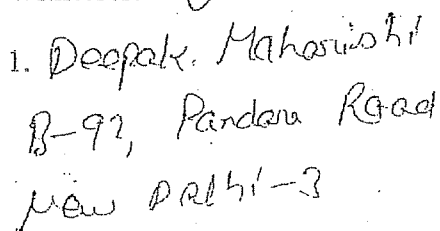 1. Deepak. Maharishi
B-92, Pandara Road
New Delhi-3